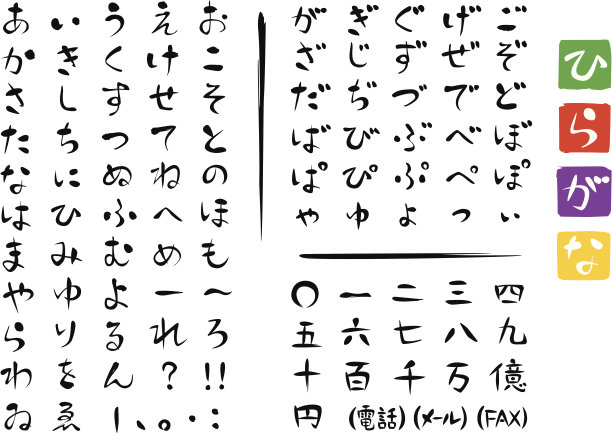 あいうえお
かきくけこ
さしすせそ
たちつてと
なにぬねの
はひふへほ
まみむめも
やゆよー〜
らりるれろ
わをん?!!
ゐゑ|、。・:
がぎぐげご
ざじずぜぞ
だぢづでど
ばびぶべぼ
ぱぴぷぺぽ
ゃゅょっぃ
〇一二三四
五六七八九
十百千万億
円 (電話) (メール) (FAX)
ひらがな